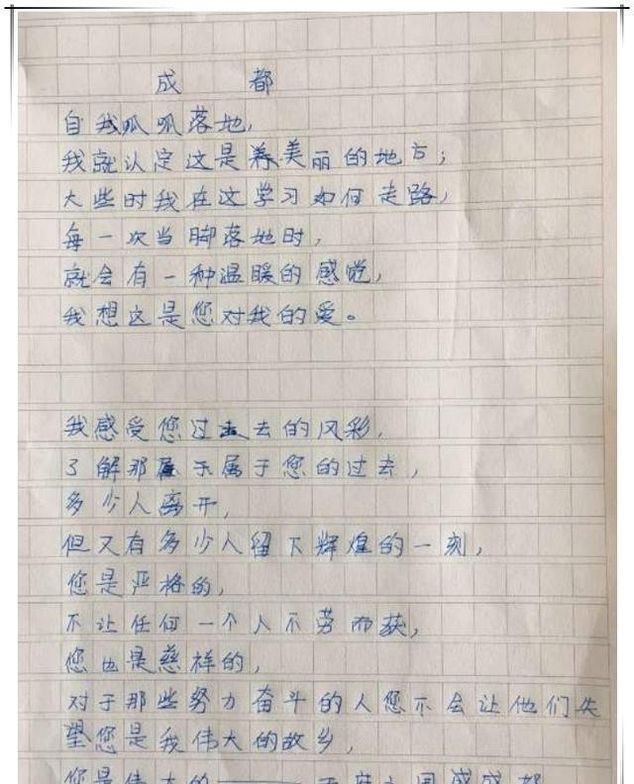 成 都
自我呱呱落地，
我就认定这是养美丽的地方；
大些时我在这学习如何走路，
每一次当脚落地时，
就会有一种温暖的感觉，
我想这是您对我的爱。
我感受您过去的风彩，
了解那属于您的过去，
多少人离开，
但又有多少人留下辉煌的一刻，
您是严格的，
不让任何一个人不劳而获，
您也是慈祥的，
对于那些努力奋斗的人您不会让他们失
望您是我伟大的故乡，
您是伟大的——天府之国成成都